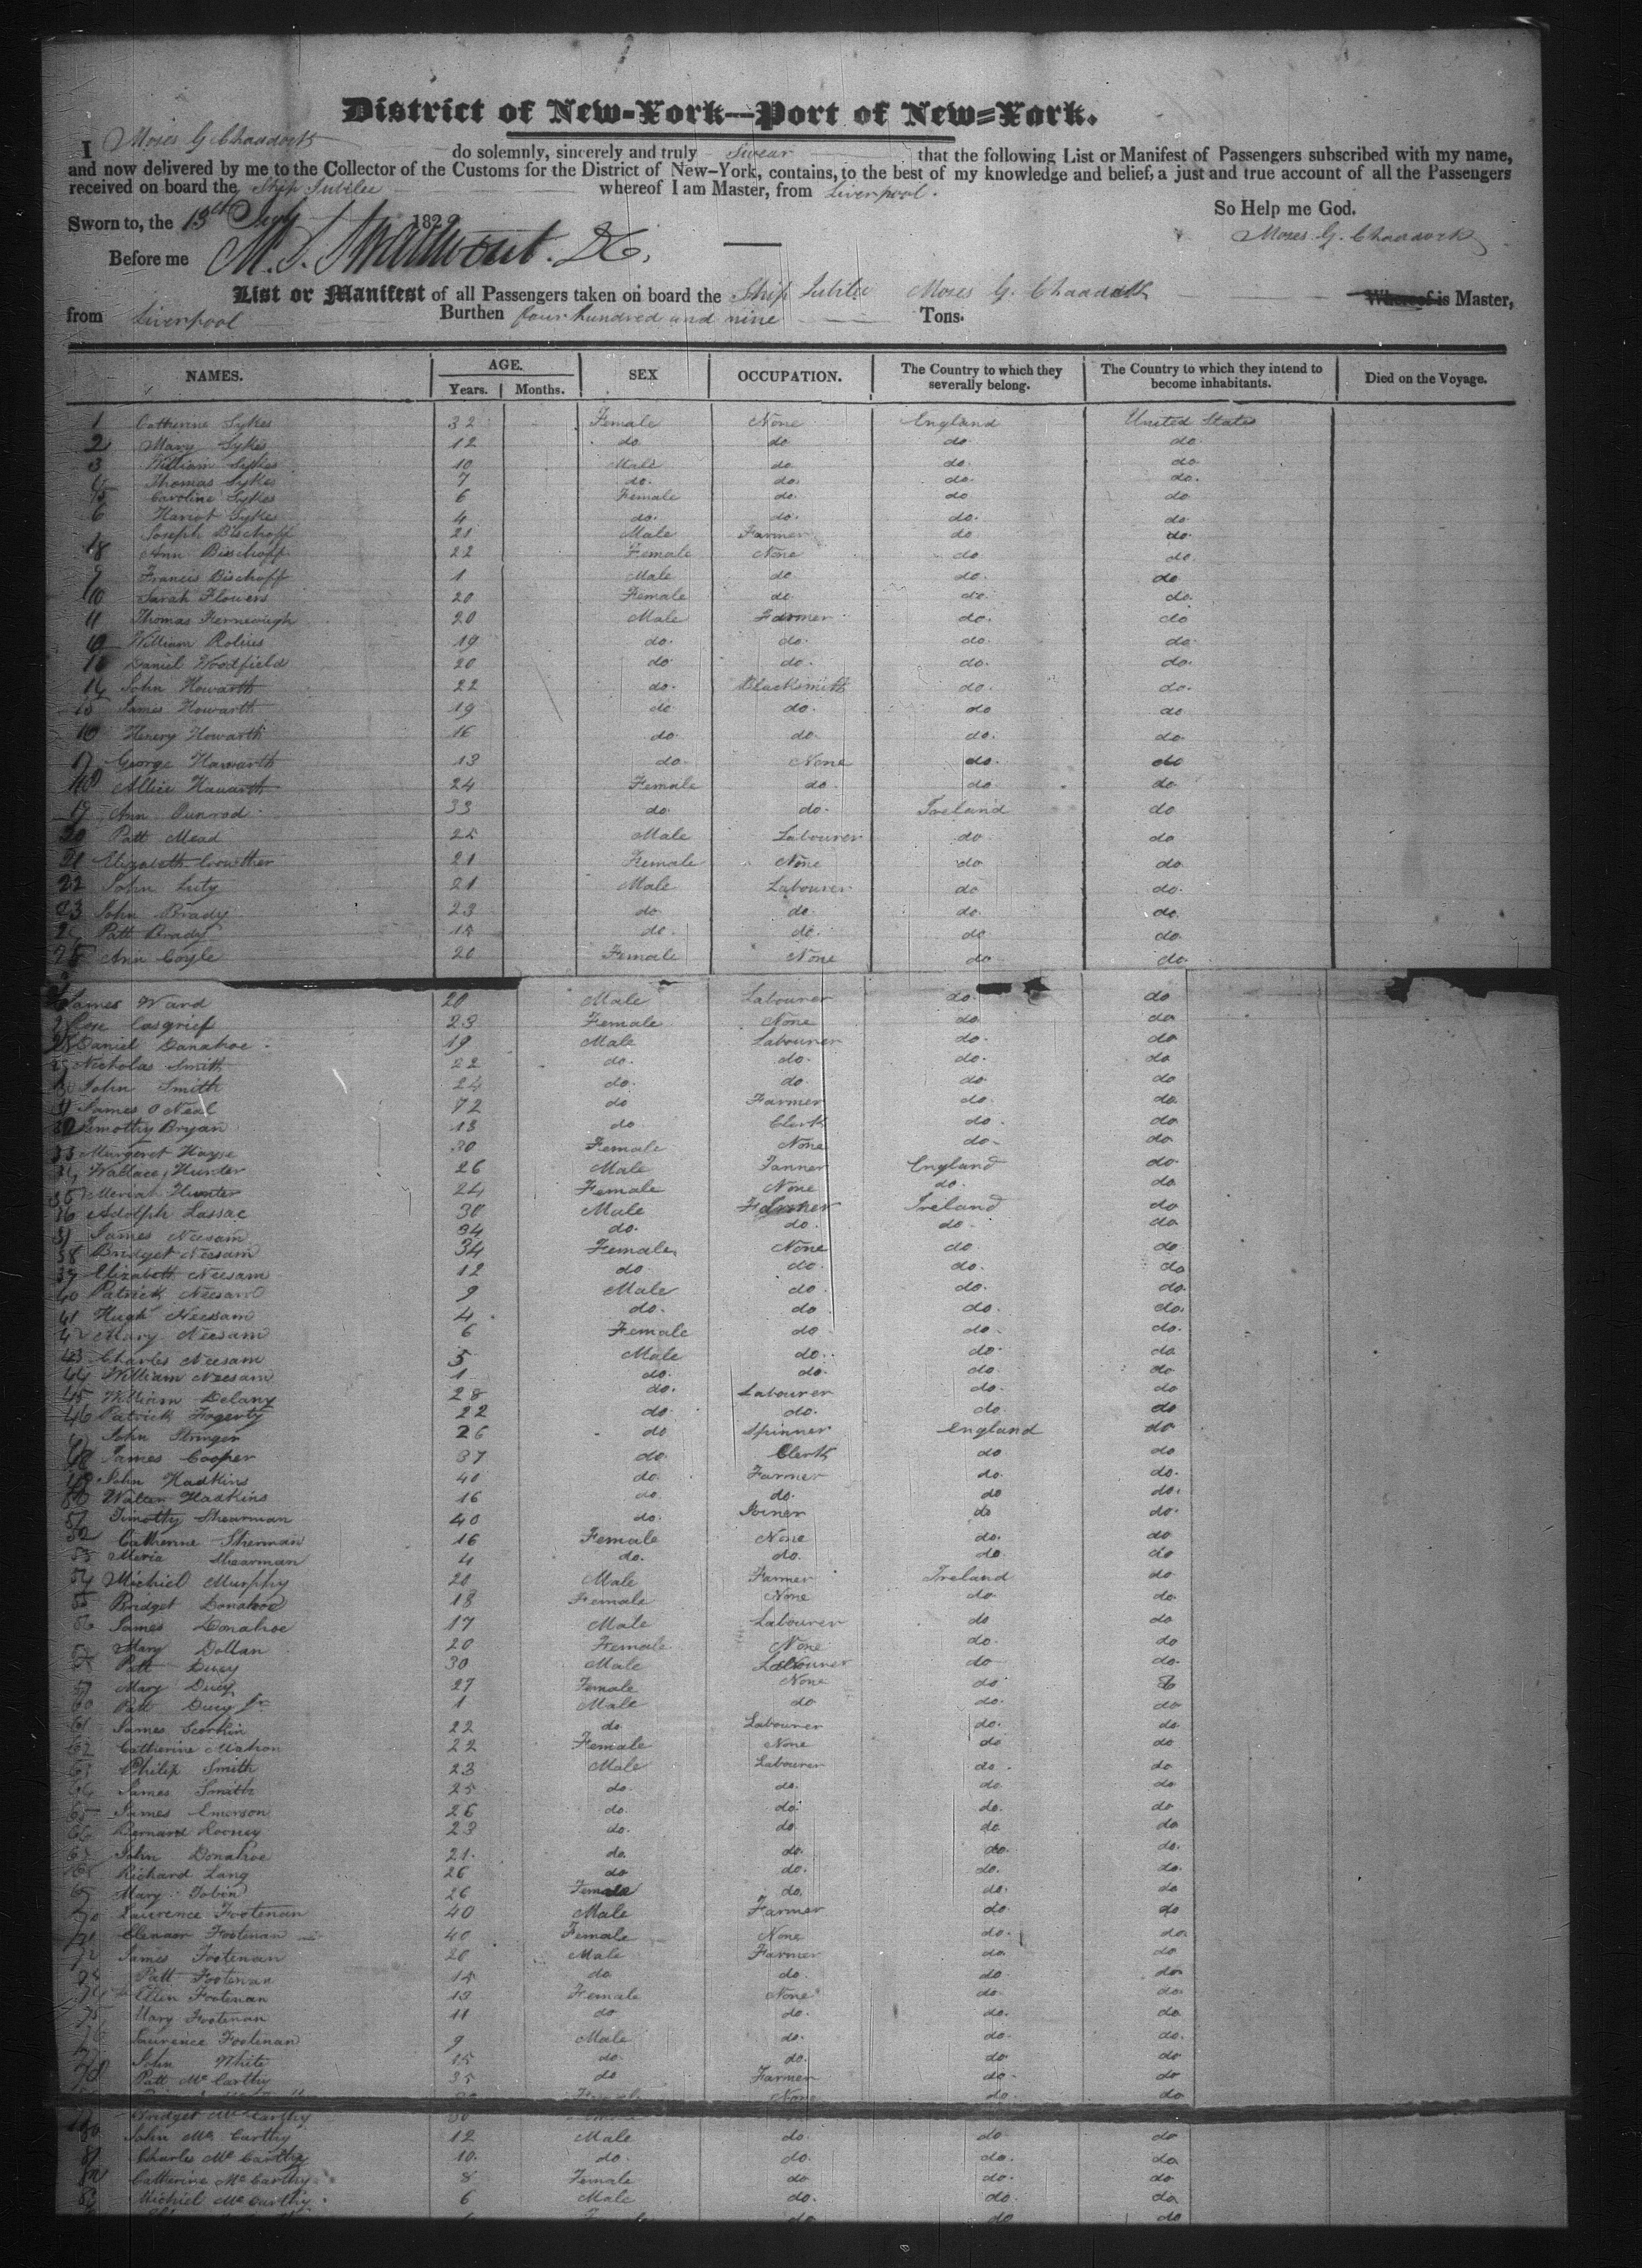 District of New-York—Port of New=York.
I Moses G. Chaddock do solemnly, sincerely and truly swear that the following List or Manifest of Passengers subscribed with my name,
and now delivered by me to the Collector of the Customs for the District of New-York, contains, to the best of my knowledge and belief, a just and true account of all the Passengers
received on board the Ship Jubilee whereof I am Master, from Liverpool.
So Help me God.
Sworn to, the 13th July 1829
Moses G. Chaddock
Before me
List or Manifest of all Passengers taken on board the Ship Jubilee Moses G. Chaddock Whereof is Master,
from Liverpool Burthen four hundred and nine Tons.
NAMES. AGE. Years. Months. SEX OCCUPATION. The Country to which they severally belong. The Country to which they intend to become inhabitants. Died on the Voyage.
1 Catherine Sykes 32 Female None England United States
2 Mary Sykes 12 do do do do
3 William Sykes 10 Male do do do
4 Thomas Sykes 7 do do do do
5 Caroline Sykes 6 Female do do do
6 Hariot Sykes 4 do do do do
Joseph Bischoff 21 Male Farmer do do
8 Ann Bischoff 22 Female None do do
9 Francis Bischoff 1 Male do do do
10 Sarah Flowers 20 Female do do do
11 Thomas 20 Male Farmer do do
12 William 19 do do do do
13 Daniel Woodfield 20 do do do do
14 John Howarth 22 do Blacksmith do do
15 James Howarth 19 do do do do
16 Henery Howarth 16 do do do do
17 George Howarth 13 do None do do
18 Allice Howarth 24 Female do do do
19 Ann 33 do do Ireland do
20 Patt Mead 25 Male Labourer do do
21 Elizabeth Crowther 21 Female None do do
22 John Luty 21 Male Labourer do do
23 John Brady 23 do do do do
24 Patt Brady 15 do do do do
25 Ann Coyle 20 Female None do do
James Ward 20 Male Labourer do do
27 Rose 23 Female None do do
28 Daniel Danahoe 19 Male Labourer do do
29 Nicholas Smith 22 do do do do
30 John Smith 24 do do do do
31 James O Neal 72 do Farmer do do
32 Timothy Bryan 13 do Clerk do do
33 Margeret Hayse 30 Female None do do
34 Wallace Hunter 26 Male Tanner England do
35 Meriah Hunter 24 Female None do do
36 Adolph Lassac 30 Male Farmer Ireland do
37 James Neesam 34 do do do do
38 Bridget Neesam 34 Female None do do
39 Elizabeth Neesam 12 do do do do
40 Patrick Neesam 9 Male do do do
41 Hugh Neesam 4 do do do do
42 Mary Neesam 6 Female do do do
43 Charles Neesam 5 Male do do do
44 William Neesam 1 do do do do
45 William Delany 28 do Labourer do do
46 Patrick Fogerty 22 do do do do
47 John Stringer 26 do Spinner England do
48 James Cooper 37 do Clerk do do
49 John Hadkins 40 do Farmer do do
50 Walter Hadkins 16 do do do do
51 Timothy Shearman 40 do Joiner do do
52 Catherine Sherman 16 Female None do do
53 Meria Shearman 4 do do do do
54 Michiel Murphy 20 Male Farmer Ireland do
55 Bridget Donahoe 18 Female None do do
56 James Donahoe 17 Male Labourer do do
57 Mary Dollan 20 Female None do do
58 Patt Ducy 30 Male Labourer do do
59 Mary Ducy 27 Female None do do
60 Patt Ducy Jr 1 Male do do do
61 James 22 do Labourer do do
62 Catherine Mahon 22 Female None do do
63 Philip Smith 23 Male Labourer do do
64 James Smith 25 do do do do
65 James Emerson 26 do do do do
66 Bernard Rooney 23 do do do do
67 John Donahoe 21 do do do do
68 Richard Lang 26 do do do do
69 Mary Tobin 26 Female do do do
70 Laurence Footenan 40 Male Farmer do do
71 Elenaor Footenan 40 Female None do do
72 James Footenan 20 Male Farmer do do
73 Patt Footenan 15 do do do do
74 Ellen Footenan 13 Female None do do
75 Mary Footenan 11 do do do do
76 Laurence Footenan 9 Male do do do
77 John White 15 do do do do
78 Patt McCarthy 35 do Farmer do do
79 Bridget McCarthy 30 Female None do do
80 John McCarthy 12 Male do do do
81 Charles McCarthy 10 do do do do
82 Catherine McCarthy 8 Female do do do
83 Michiel McCarthy 6 Male do do do
do do do